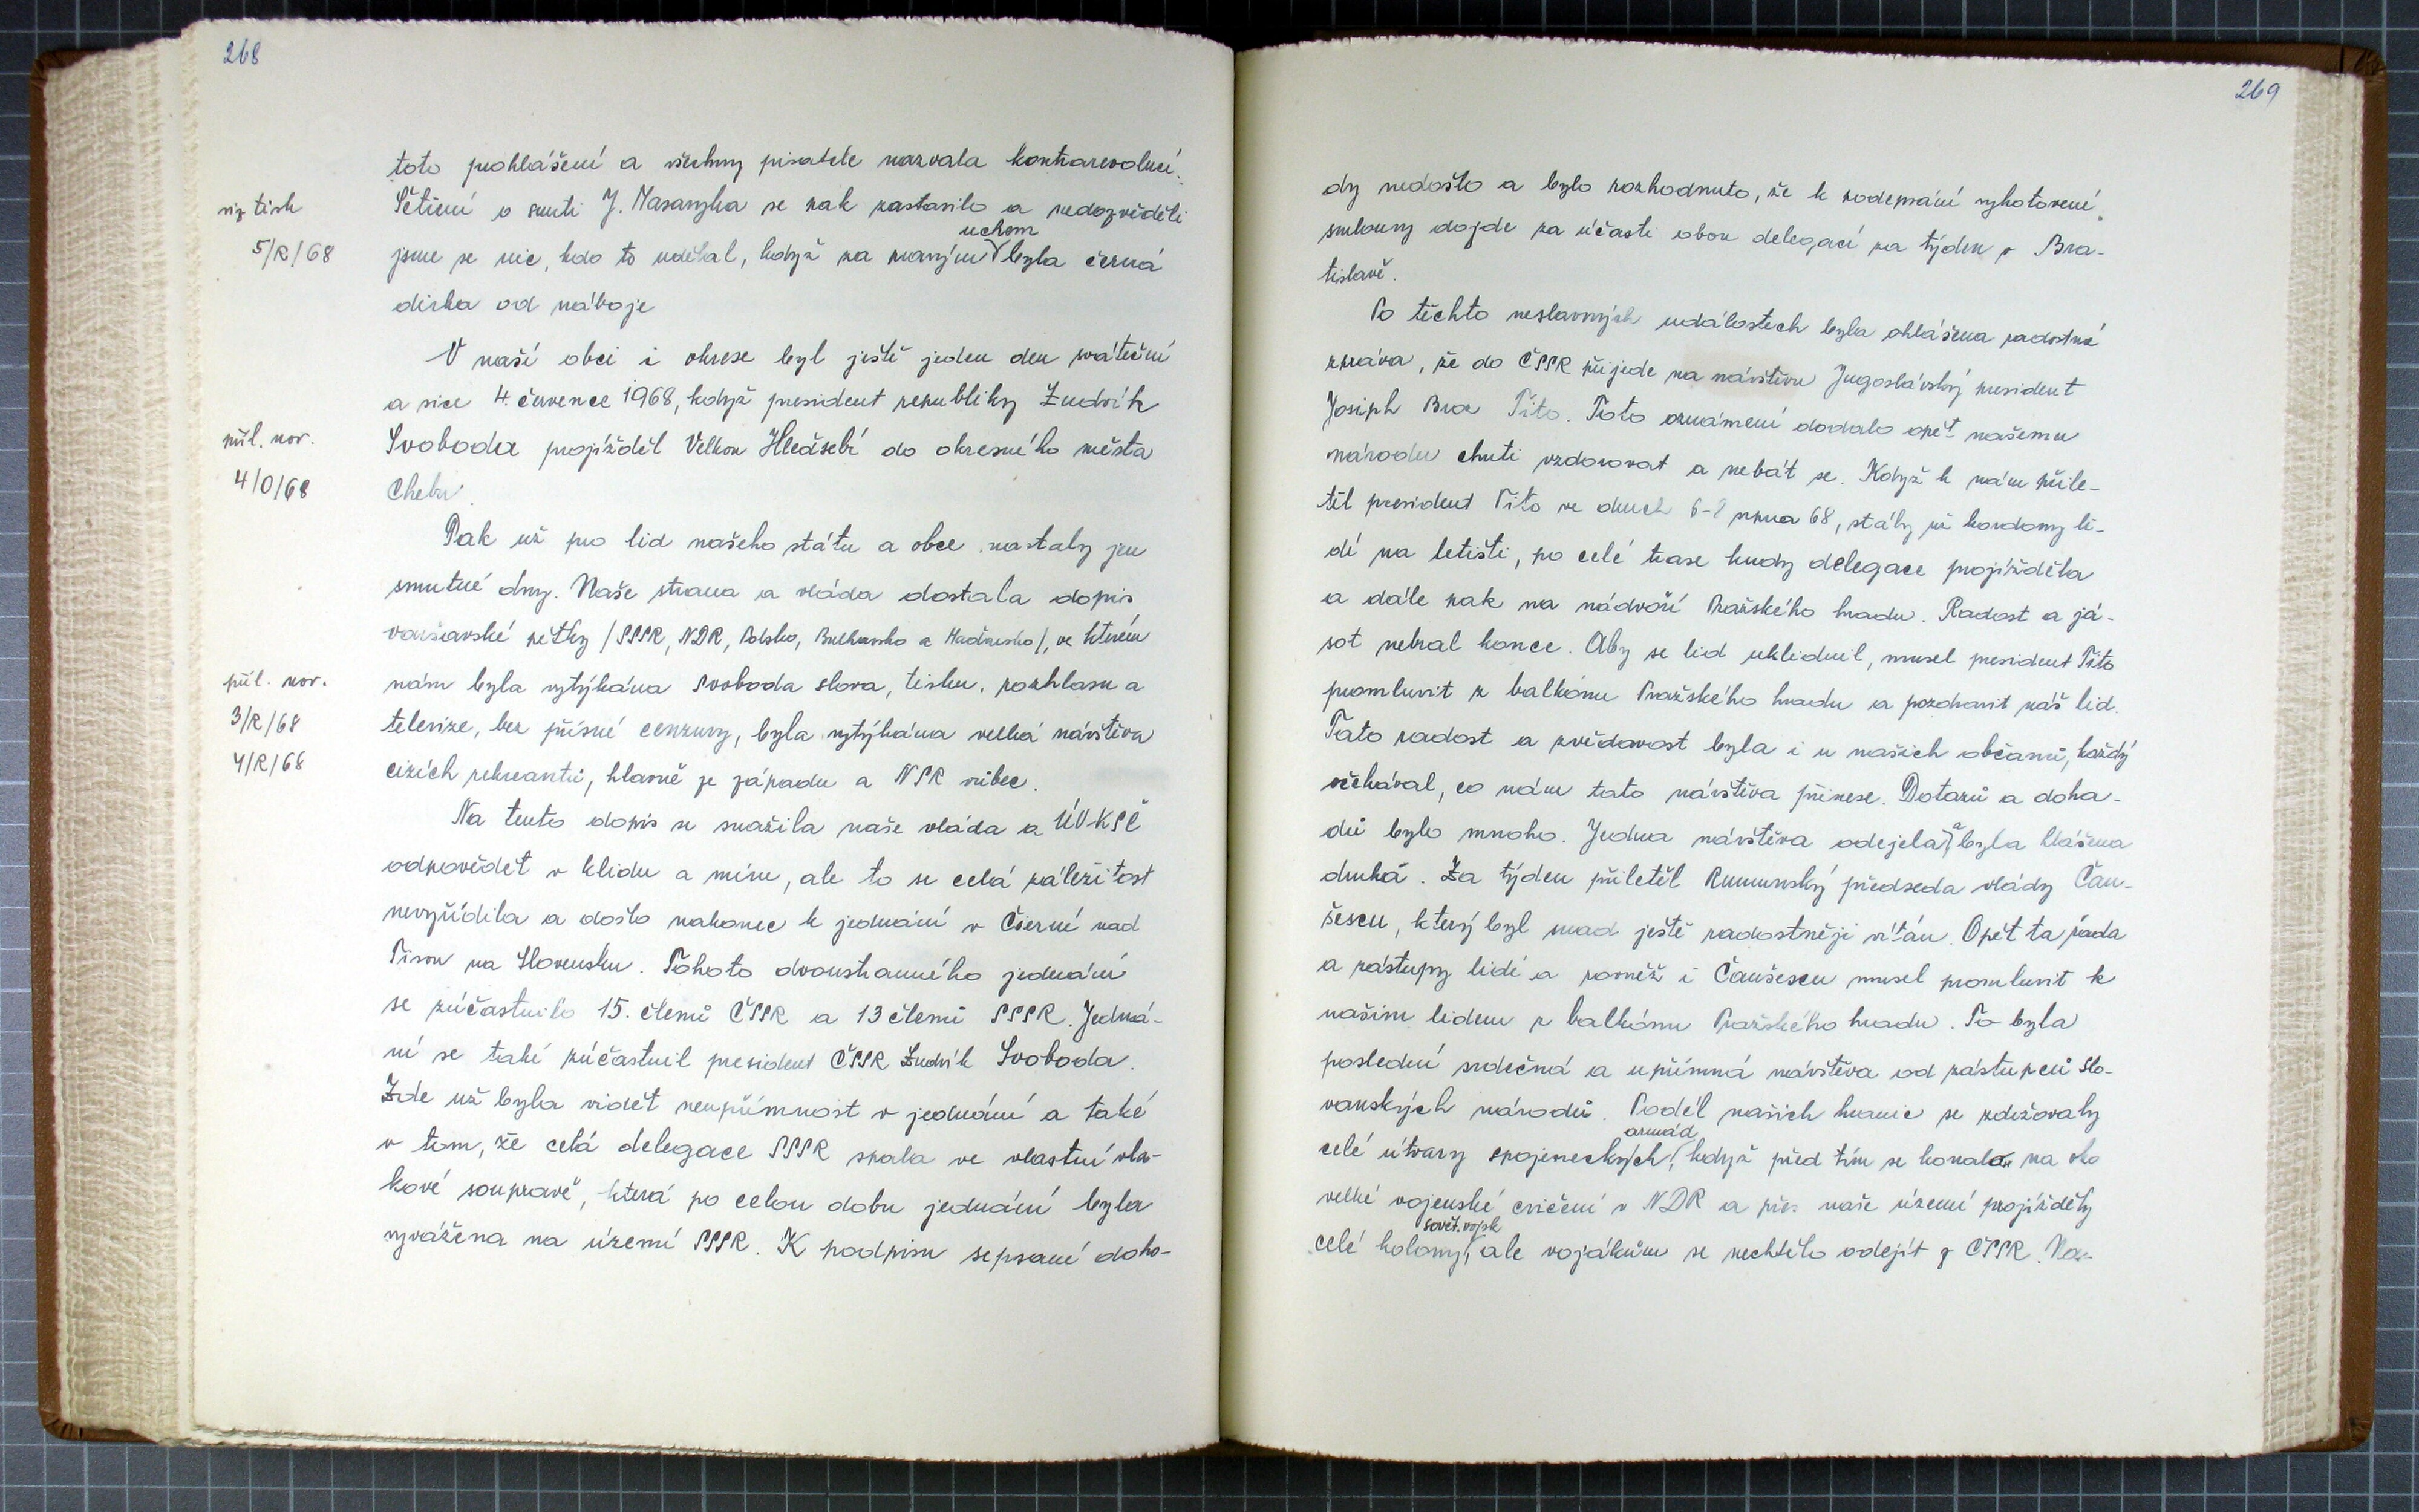 268
toto prohlášení a všechny pisatele nazvala kontrarevolucí.
viz tisk
Šetření o smrti J. Masaryka se pak zastavilo a nedozvěděli
uchem
5/R/68
jsme se nic, kdo to udělal, když za pravým byla černá
dírka od náboje
V naší obci i okrese byl ještě jeden den sváteční
a sice 4. července 1968, když president republiky Ludvík
příl. nov.
Svoboda projížděl Velkou Hleďsebí do okresního města
4/O/68
Chebu.
Pak už pro lid našeho státu a obce nastaly jen
smutné dny. Naše strana a vláda dostala dopis
varšavské pětky /SSSR, NDR, Polsko, Bulharsko a Maďarsko/, ve kterém
příl. nov.
nám byla vytýkána svoboda slova, tisku, rozhlasu a
3/R/68
televize, bez přísné cenzury, byla vytýkána velká návštěva
4/R/68
cizích rekreantů, hlavně ze západu a NSR vůbec.
Na tento dopis se snažila naše vláda a ÚV-KSČ
odpovědět v klidu a míru, ale to se celá záležitost
nevyřídila a došlo nakonec k jednání v Čierné nad
Tisou na Slovensku. Tohoto dvoustranného jednání
se zúčastnilo 15. členů ČSSR a 13 členů SSSR. Jedná-
ní se také zúčastnil president ČSSR Ludvík Svoboda.
Zde už byla vidět neupřímnost v jednání a také
v tom, že celá delegace SSSR spala ve vlastní vla-
kové soupravě, která po celou dobu jednání byla
vyvážena na území SSSR. K podpisu sepsané doho-
269
dy nedošlo a bylo rozhodnuto, že k podepsání vyhotovené
smlouvy dojde za účasti obou delegací za týden v Bra-
tislavě.
Po těchto neslavných událostech byla ohlášena radostná
zpráva, že do ČSSR přijede na návštěvu Jugoslávský president
Josiph Broz Tito. Toto oznámení dodalo opět našemu
národu chuti vzdorovat a nebát se. Když k nám přile-
těl president Tito ve dnech srpna 68, stály již kordony li-
dí na letišti, po celé trase kudy delegace projížděla
a dále pak na nádvoří Pražského hradu. Radost a já-
sot nebral konce. Aby se lid uklidnil, musel president Tito
promluvit z balkónu Pražského hradu a pozdravit náš lid.
Tato radost a zvědavost byla i u našich občanů, každý
očekával, co nám tato návštěva přinese. Dotazů a doha-
dů bylo mnoho. Jedna návštěva odejela, a byla hlášena
druhá. Za týden přiletěl Rumunský předseda vlády Čau-
šescu, který byl snad ještě radostněji vítán. Opět ta řada
a zástupy lidí a rovněž i Čaušescu musel promluvit k
našim lidem z balkónu Pražského hradu. To byla
poslední srdečná a upřímná návštěva od zástupců slo-
vanských národů. Podél našich hranic se zdržovaly
armád
celé útvary spojeneckých, když před tím se konalo na oko
velké vojenské cvičení v NDR a přes naše území projížděly
sovět. vojsk
celé kolony, ale vojákům se nechtělo odejít z ČSSR. Na-